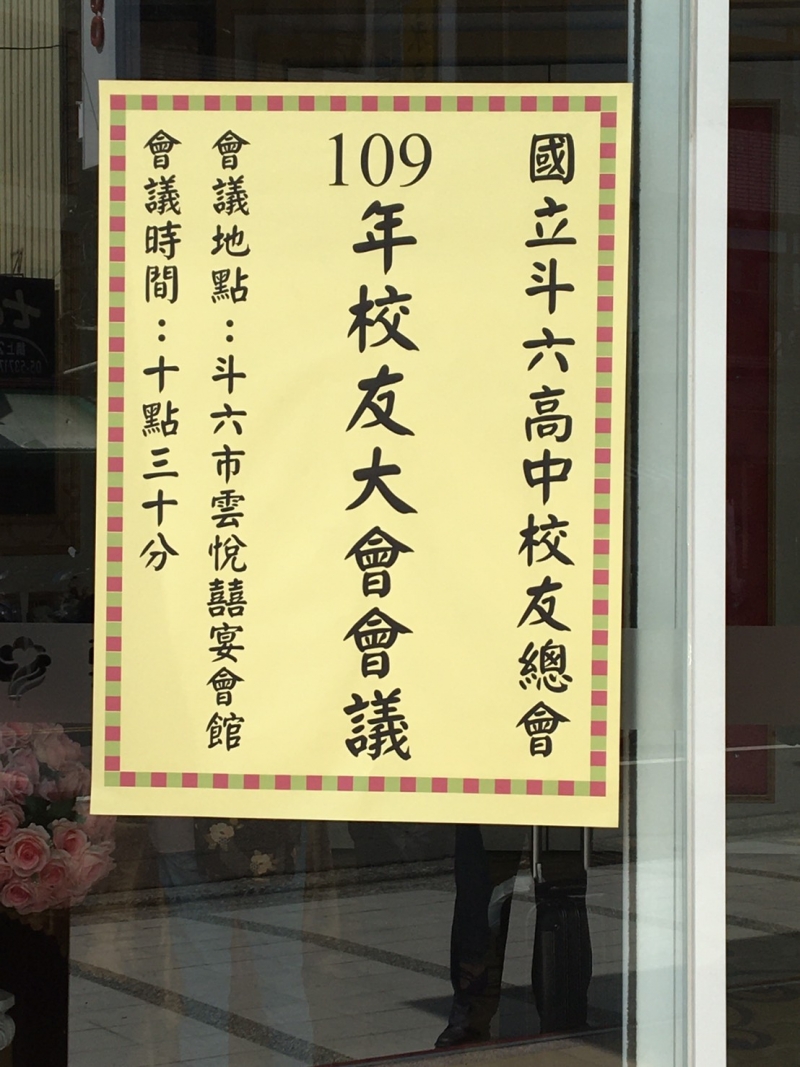 國立斗六高中校友總會
109年校友大會會議
會議地點：斗六市雲悅囍宴會館
會議時間：十點三十分